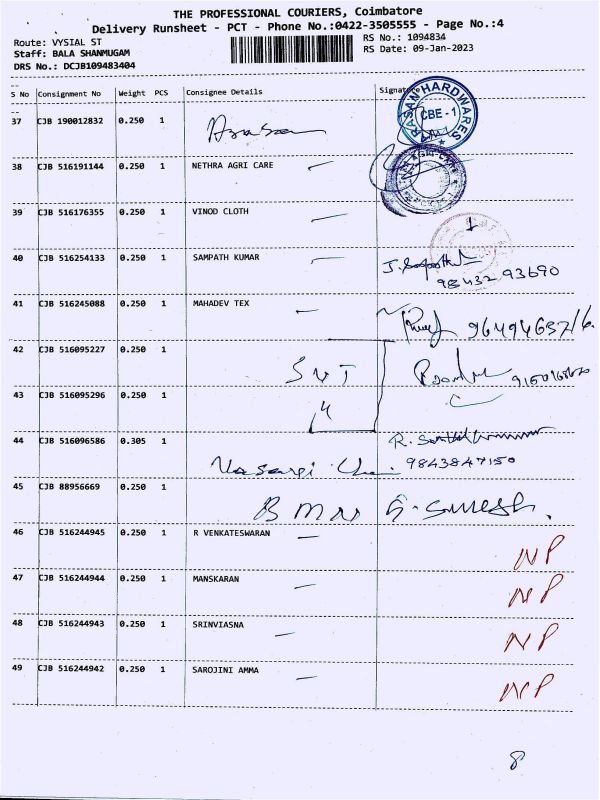 THE PROFESSIONAL COURIERS, Coimbatore
Delivery Runsheet - PCT - Phone No.:0422-3505555 - Page No.:4
Route: VYSIAL ST
RS No.: 1094834
Staff: BALA SHANMUGAM
RS Date: 09-Jan-2023
DRS No.: DCJB109483404
S No Consignment No Weight PCS Consignee Details Signature
37 CJB 190012832 0.250 1
HARDWARES
CBE - 1
38 CJB 516191144 0.250 1 NETHRA AGRI CARE
39 CJB 516176355 0.250 1 VINOD CLOTH
40 CJB 516254133 0.250 1 SAMPATH KUMAR
98432 93690
41 CJB 516245088 0.250 1 MAHADEV TEX
42 CJB 516095227 0.250 1
S V T
43 CJB 516095296 0.250 1
4
44 CJB 516096586 0.305 1
9843847150
45 CJB 88956669 0.250 1
B M N G. Suresh.
46 CJB 516244945 0.250 1 R VENKATESWARAN NP
47 CJB 516244944 0.250 1 MANSKARAN NP
48 CJB 516244943 0.250 1 SRINVIASNA NP
49 CJB 516244942 0.250 1 SAROJINI AMMA NP
8